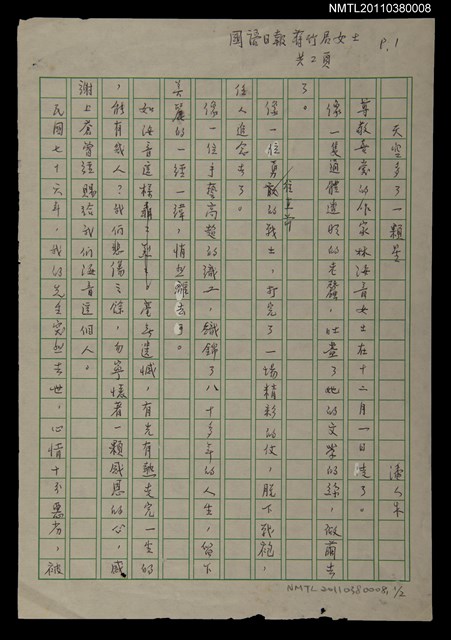 NMTL20110380008
國語日報 蔣竹君女士
共二頁
P.1
天空多了一顆星
潘人木
尊敬喜愛的作家林海音女士在十二月一日走了。
像一隻通體透明的老蠶，吐盡了她的文學的絲，做繭去
了。
像一位勇敢的戰士，打完了一場精彩的仗，脫下戰袍，
任人追念去了。
像一位手藝高超的織工，織錦了八十多年的人生，留下
美麗的一經一緯，悄然離去了。
如海音這樣轟轟烈烈、毫無遺憾，有光有熱走完一生的
，能有幾人？我們悲傷之餘，勿寧懷著一顆感恩的心，感
謝上蒼曾經賜給我們海音這個人。
民國七十六年，我的先生突然去世，心情十分惡劣，被
NMTL20110380008, 1/2